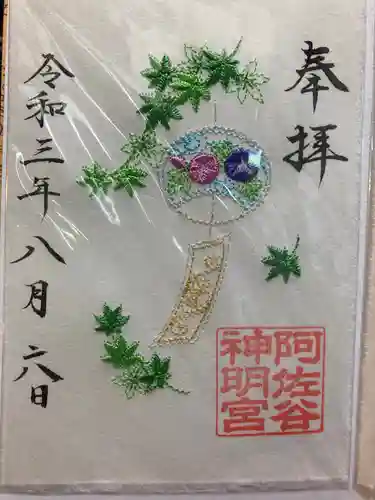 奉拝
阿佐谷
神明宮
令和三年八月六日